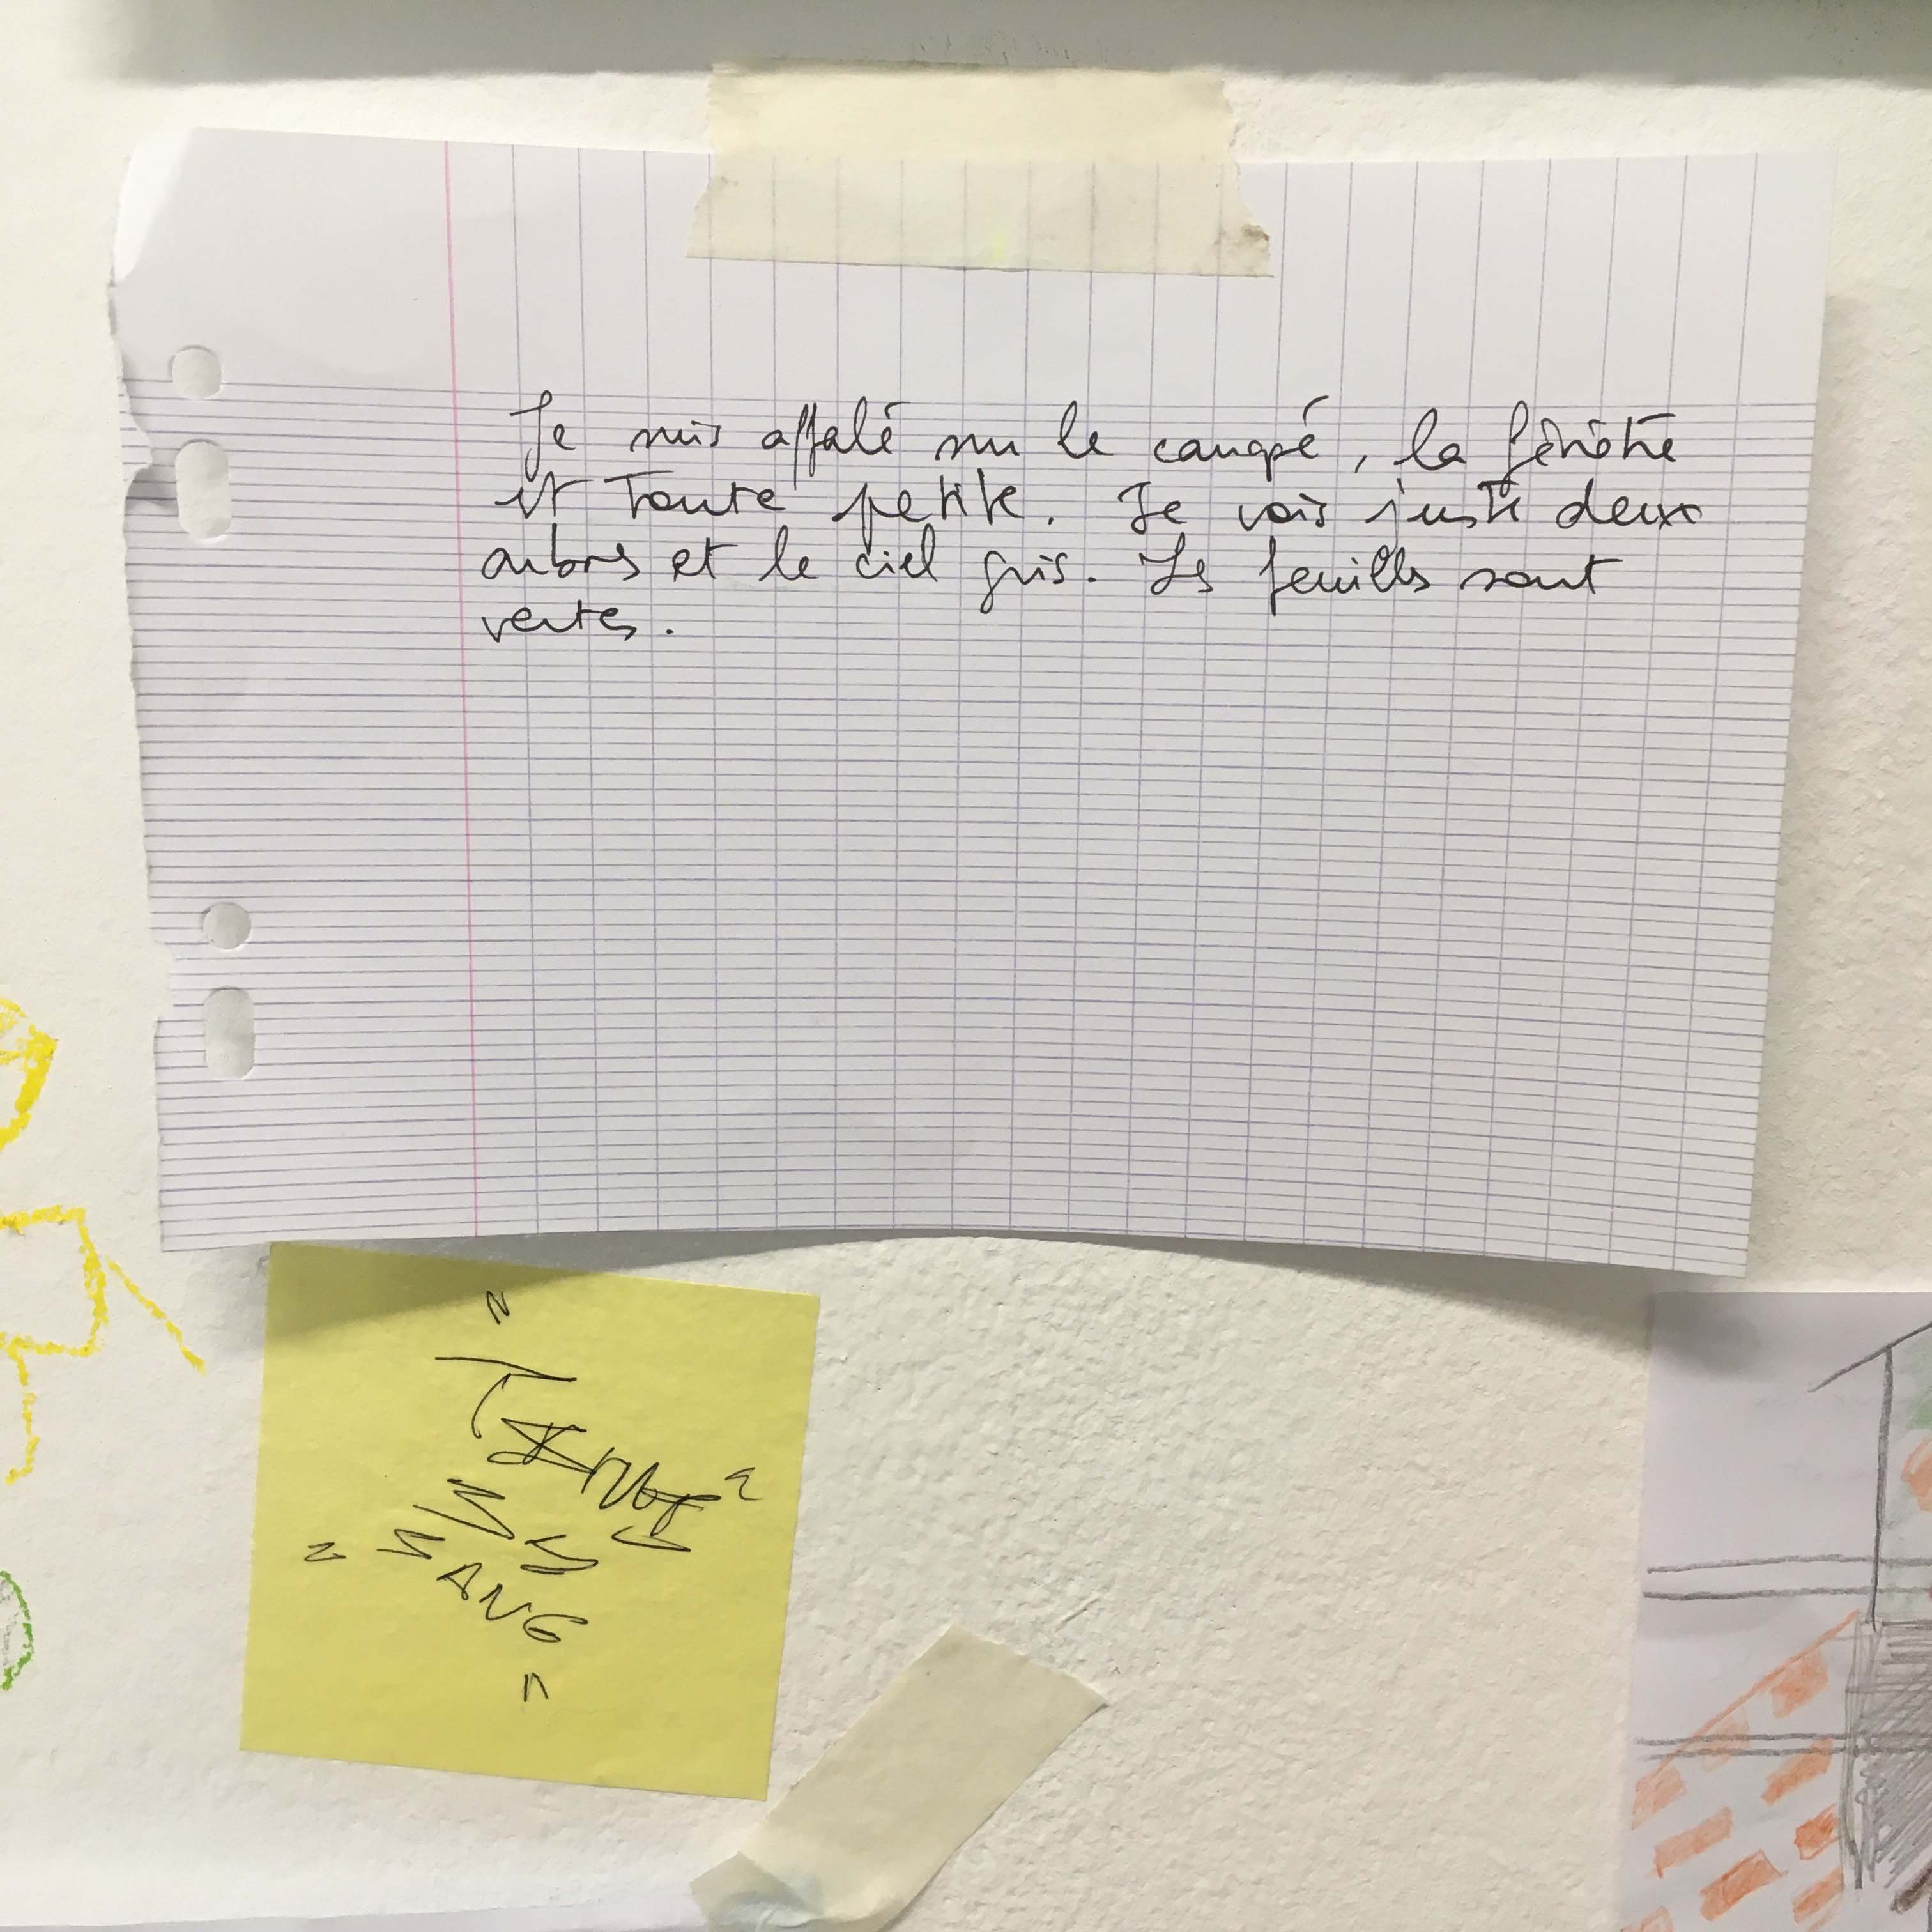 Je suis affalé sur le canapé, la fenêtre
est toute petite. Je vois juste deux
arbres et le ciel gris. Les feuilles sont
vertes.
YANG